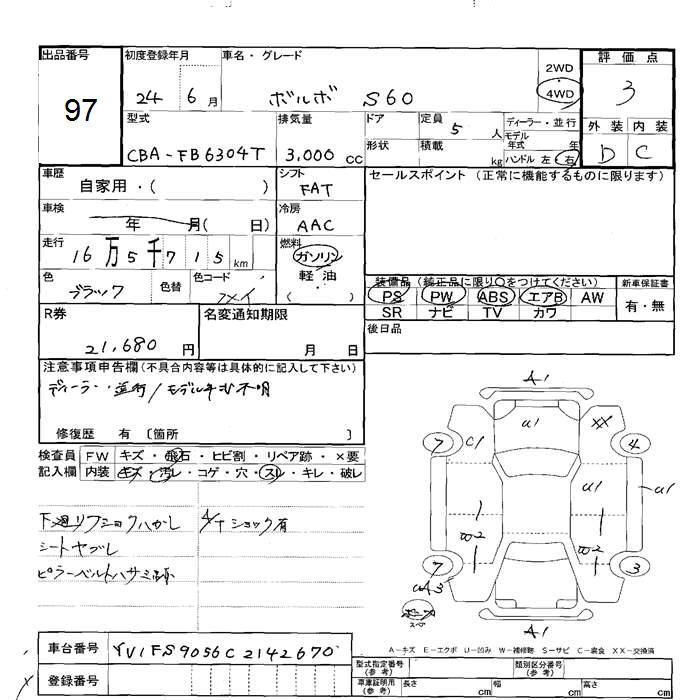 出品番号
97
初度登録年月
24 6 月
車名・グレード
ボルボ S60
2WD
4WD
評価点
3
外装 内装
D C
型式
CBA-FB6304T
排気量
3,000 cc
ドア
定員
5 人
形状
積載
kg
ディーラー・並行
モデル
年式 年
ハンドル 左 右
車歴
自家用・( )
シフト
FAT
車検
年 月( 日)
冷房
AAC
走行
16 万 5 千 7 1 5 km
燃料
ガソリン
軽油
( )
色
ブラック
色替
色コード
R券
21,680 円
名変通知期限
月 日
セールスポイント (正常に機能するものに限ります)
装備品 (純正品に限り○をつけてください)
PS PW ABS エアB AW
SR ナビ TV カワ
新車保証書
有・無
後日品
注意事項申告欄(不具合内容等は具体的に記入して下さい)
ディーラー・並行/モデル年式不明
修復歴 有 〔箇所 〕
検査員
記入欄
FW キズ・飛石・ヒビ割・リペア跡・×要
内装 キズ・汚レ・コゲ・穴・スレ・キレ・破レ
下廻リフショクハガシ
A/Tショック有
シートヤブレ
ピラーベルトハサミ跡
A1
U1
XX
7
C1
4
U1
U1
W2
W2
7
3
スペア
A1
A-キズ E-エクボ U-凹み W-補修跡 S-サビ C-腐食 XX-交換済
車台番号
YV1FS9056C2142670
登録番号
型式指定番号
(参考)
類別区分番号
(参考)
車庫証明用
(参考)
長さ cm
幅 cm
高さ cm